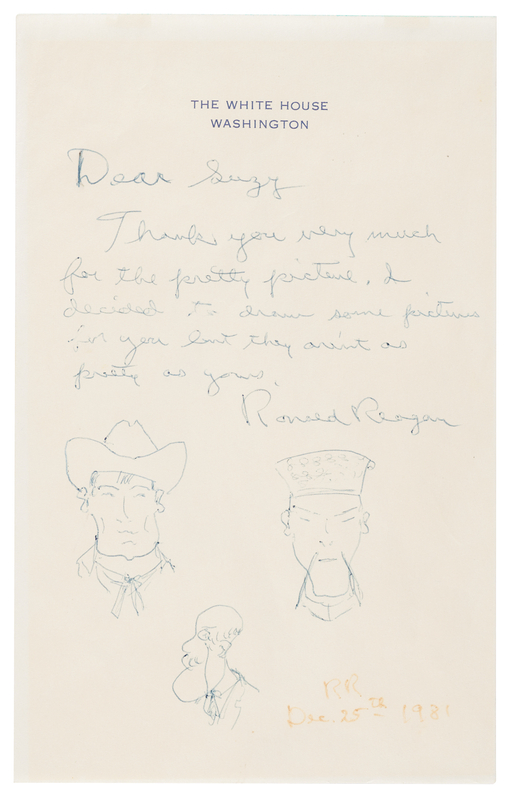 THE WHITE HOUSE
WASHINGTON
Dear Suzy
Thank you very much
for the pretty picture. I
decided to draw some pictures
for you but they arn't as
pretty as yours.
Ronald Reagan
RR
Dec. 25th 1981